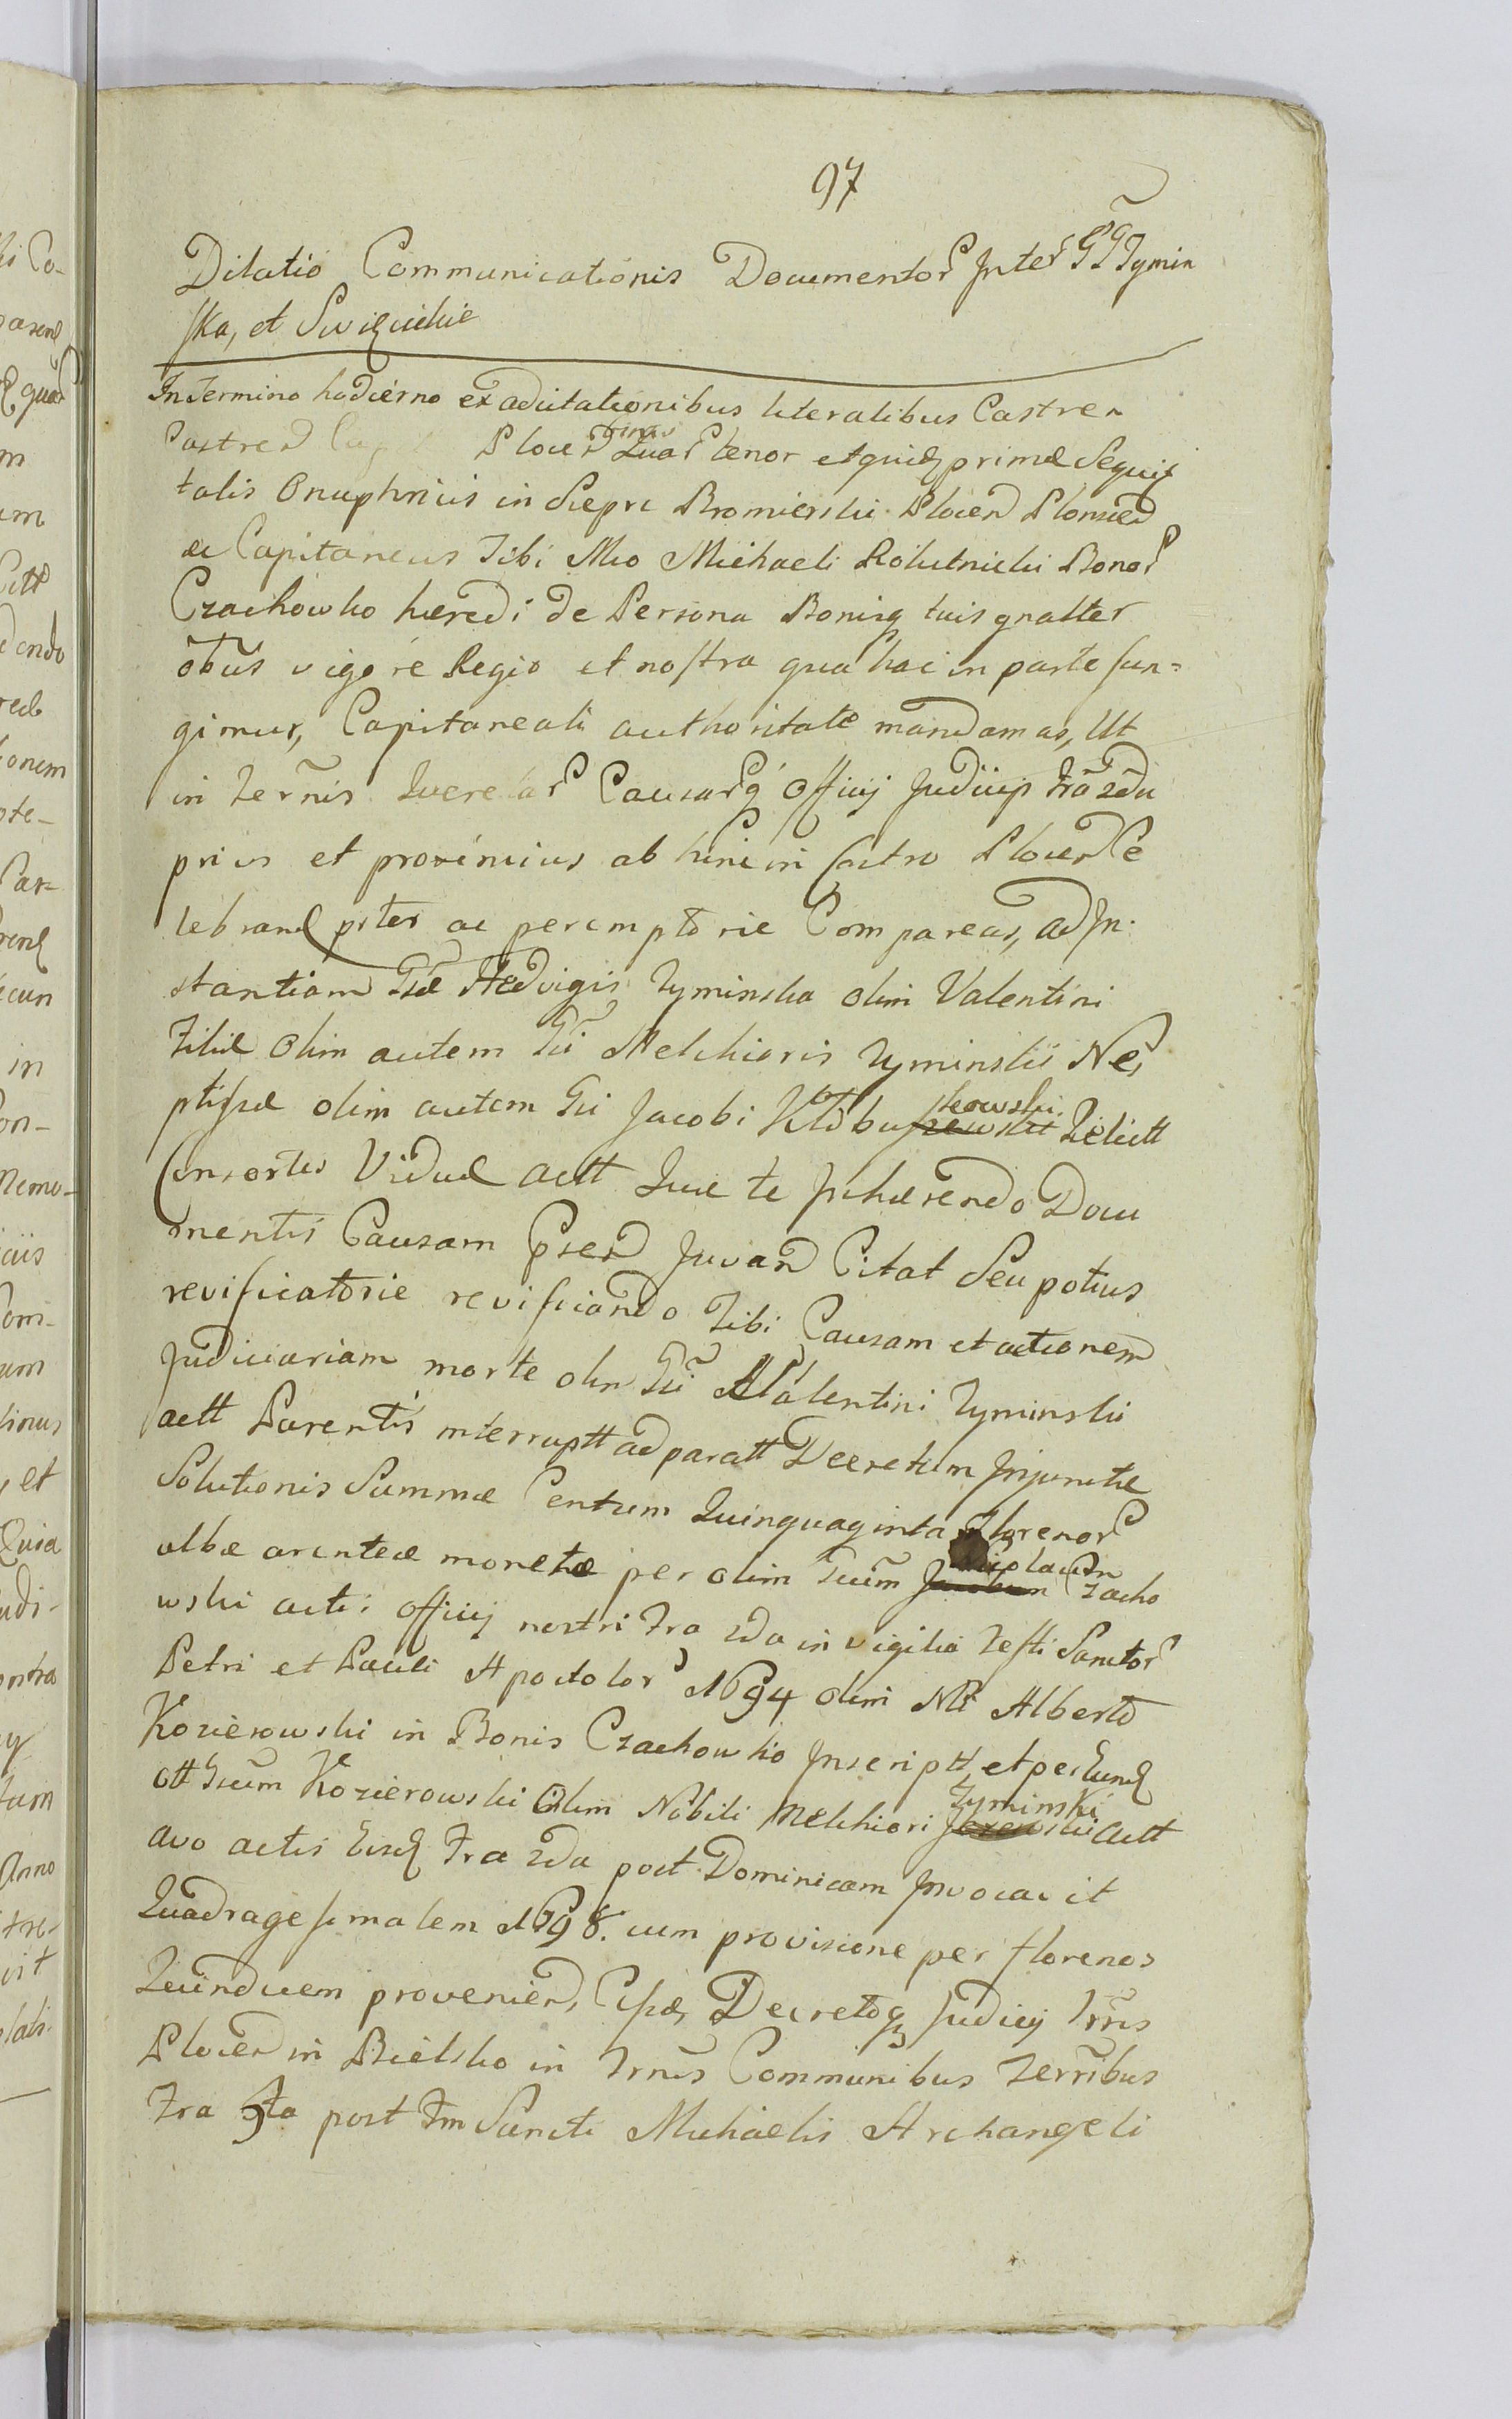 97
Dilatio Communicationis Documentor Inter GG Zymin
ska, et
In Termino hodierno ex adcitationibus literalibus Castren
Castren Plocen binis Quar tenor et quid primæ Sequit
talis Onuphrius in Siepre Bromierski Plocen Plonscen
ac Capitaneus Tibi Mco Michaeli Rokitnicki Bonor
Czachowko hæredi de Persona Bonisq tuis gnalter
obus vigore Regio et nostra qua hac in parte fun=
gimur, Capitaneali authoritate mandamus, Ut
in Termis Querelar Causarq Officij Judicijs fra 2da
prius et proximius ab hinc in Castro Plocen Ce
lebrand pster ac peremptorie Compareas, ad In-
stantiam Gsæ Hedvigis Zyminska olim Valentini
Filiæ olim autem Gsi Melchioris Zyminskii Ne,
ptisræ olim autem Gsi Jacobi Klobuszewskii kowski Relictt
Consortis Viduæ actt Quæ te Inhærendo Docu
mentis Causam Præs Juvan Citat Seu potius
revificatorie revificando Tibi Causam et actionem
Judiciariam morte olim Gsi Valentini Zyminskii
actt Parentis interruptt ad paratt Decretum Injunctæ
Solutionis Summæ Centum Quinquaginta Florenor
albæ arenteæ monetæ per olim Gsum Jacobum Czacho
wski actis Officij nostri fra 2da in vigilia Festi Sanctor
Petri et Pauli Apostolor 1694 olim Nli Alberto
Kozierowski in Bonis Czachowko Inscriptt, et per Eund
ott Gsum Kozierowski Olim Nobili Melchiori Zyminski actt
avo actis Eisd fra 2da post Dominicam Invocavit
Quadragesimalem 1698. cum provisione per florenos
Quindecem provenien, Cisæ, Decretoq Judicij Trris
Plocen in Bielsko in Trnis Communibus Terribus
fra 5ta post Fm Sancti Michaelis Archangeli